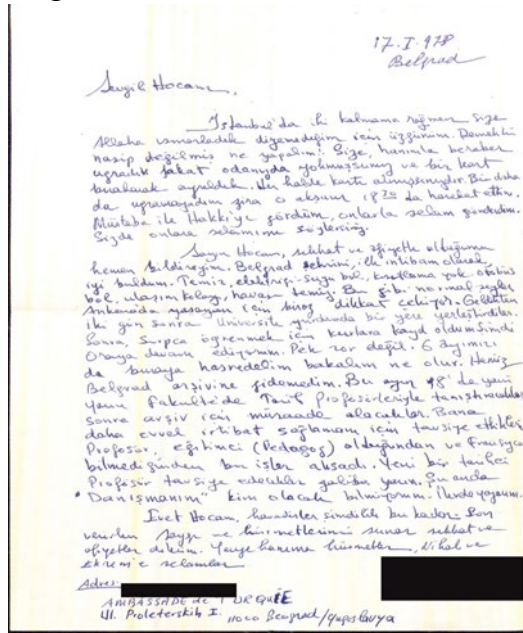 17.I.978
Belgrad
Sevgili Hocam,
İstanbul'da iki kalmama rağmen size
Allaha ısmarladık diyemediğim için üzgünüm. Demek ki
nasip değilmiş ne yapalım. Size, hanımla beraber
uğradık fakat odanızda yokmuşsunuz ve bir kart
bırakarak ayrıldık. Her halde kartı almışsınızdır. Bir daha
da uğrayamadım zira o akşam 18 de hareket ettim.
Müçteba ile Hakkı'yı gördüm, onlarla selam gönderdim.
Sizde onlara selamımı söylersiniz.
Sayın Hocam, sıhhat ve afiyette olduğumu
hemen bildireyim. Belgrad şehrini, ilk intibam olarak
iyi buldum. Temiz, elektriği suyu bol, kısıtlama yok otobüs
bol, ulaşım kolay, havası temiz. Bu gibi normal şeyler
Ankarada yaşayan için biraz dikkat çekiyor. Geldikten
iki gün sonra Üniversite yurdunda bir yere yerleştirdiler.
Sonra, Sırpça öğrenmek için kurslara kayd oldum şimdi
Oraya devam ediyorum. Pek zor değil. 6 ayımızı
da buraya hasredelim bakalım ne olur. Henüz
Belgrad arşivine gidemedim. Bu ayın 18'de yani
yarın Fakülte'de Tarih Profesörleriyle tanıştıracaklar
sonra arşiv için müsaade alacaklar. Bana
daha evvel irtibat sağlamam için tavsiye ettikleri
Profesör, eğitimci (Pedagog) olduğundan ve Fransızca
bilmediğinden bu işler aksadı. Yeni bir tarihçi
Profesör tavsiye edecekler galiba yarın. Şu anda
"Danışmanım" kim olacak bilmiyorum. İlerde yazarım.
Evet Hocam, havadisler şimdilik bu kadar. Son
verirken saygı ve hürmetlerimi sunar sıhhat ve
afiyetler dilerim. Yenge hanıma hürmetler, Nihal ve
Ekrem'e selamlar
Adres:
AMBASSADE de TURQUİE
Ul. Proleterskih I. 11000 Beograd/Yugoslavya